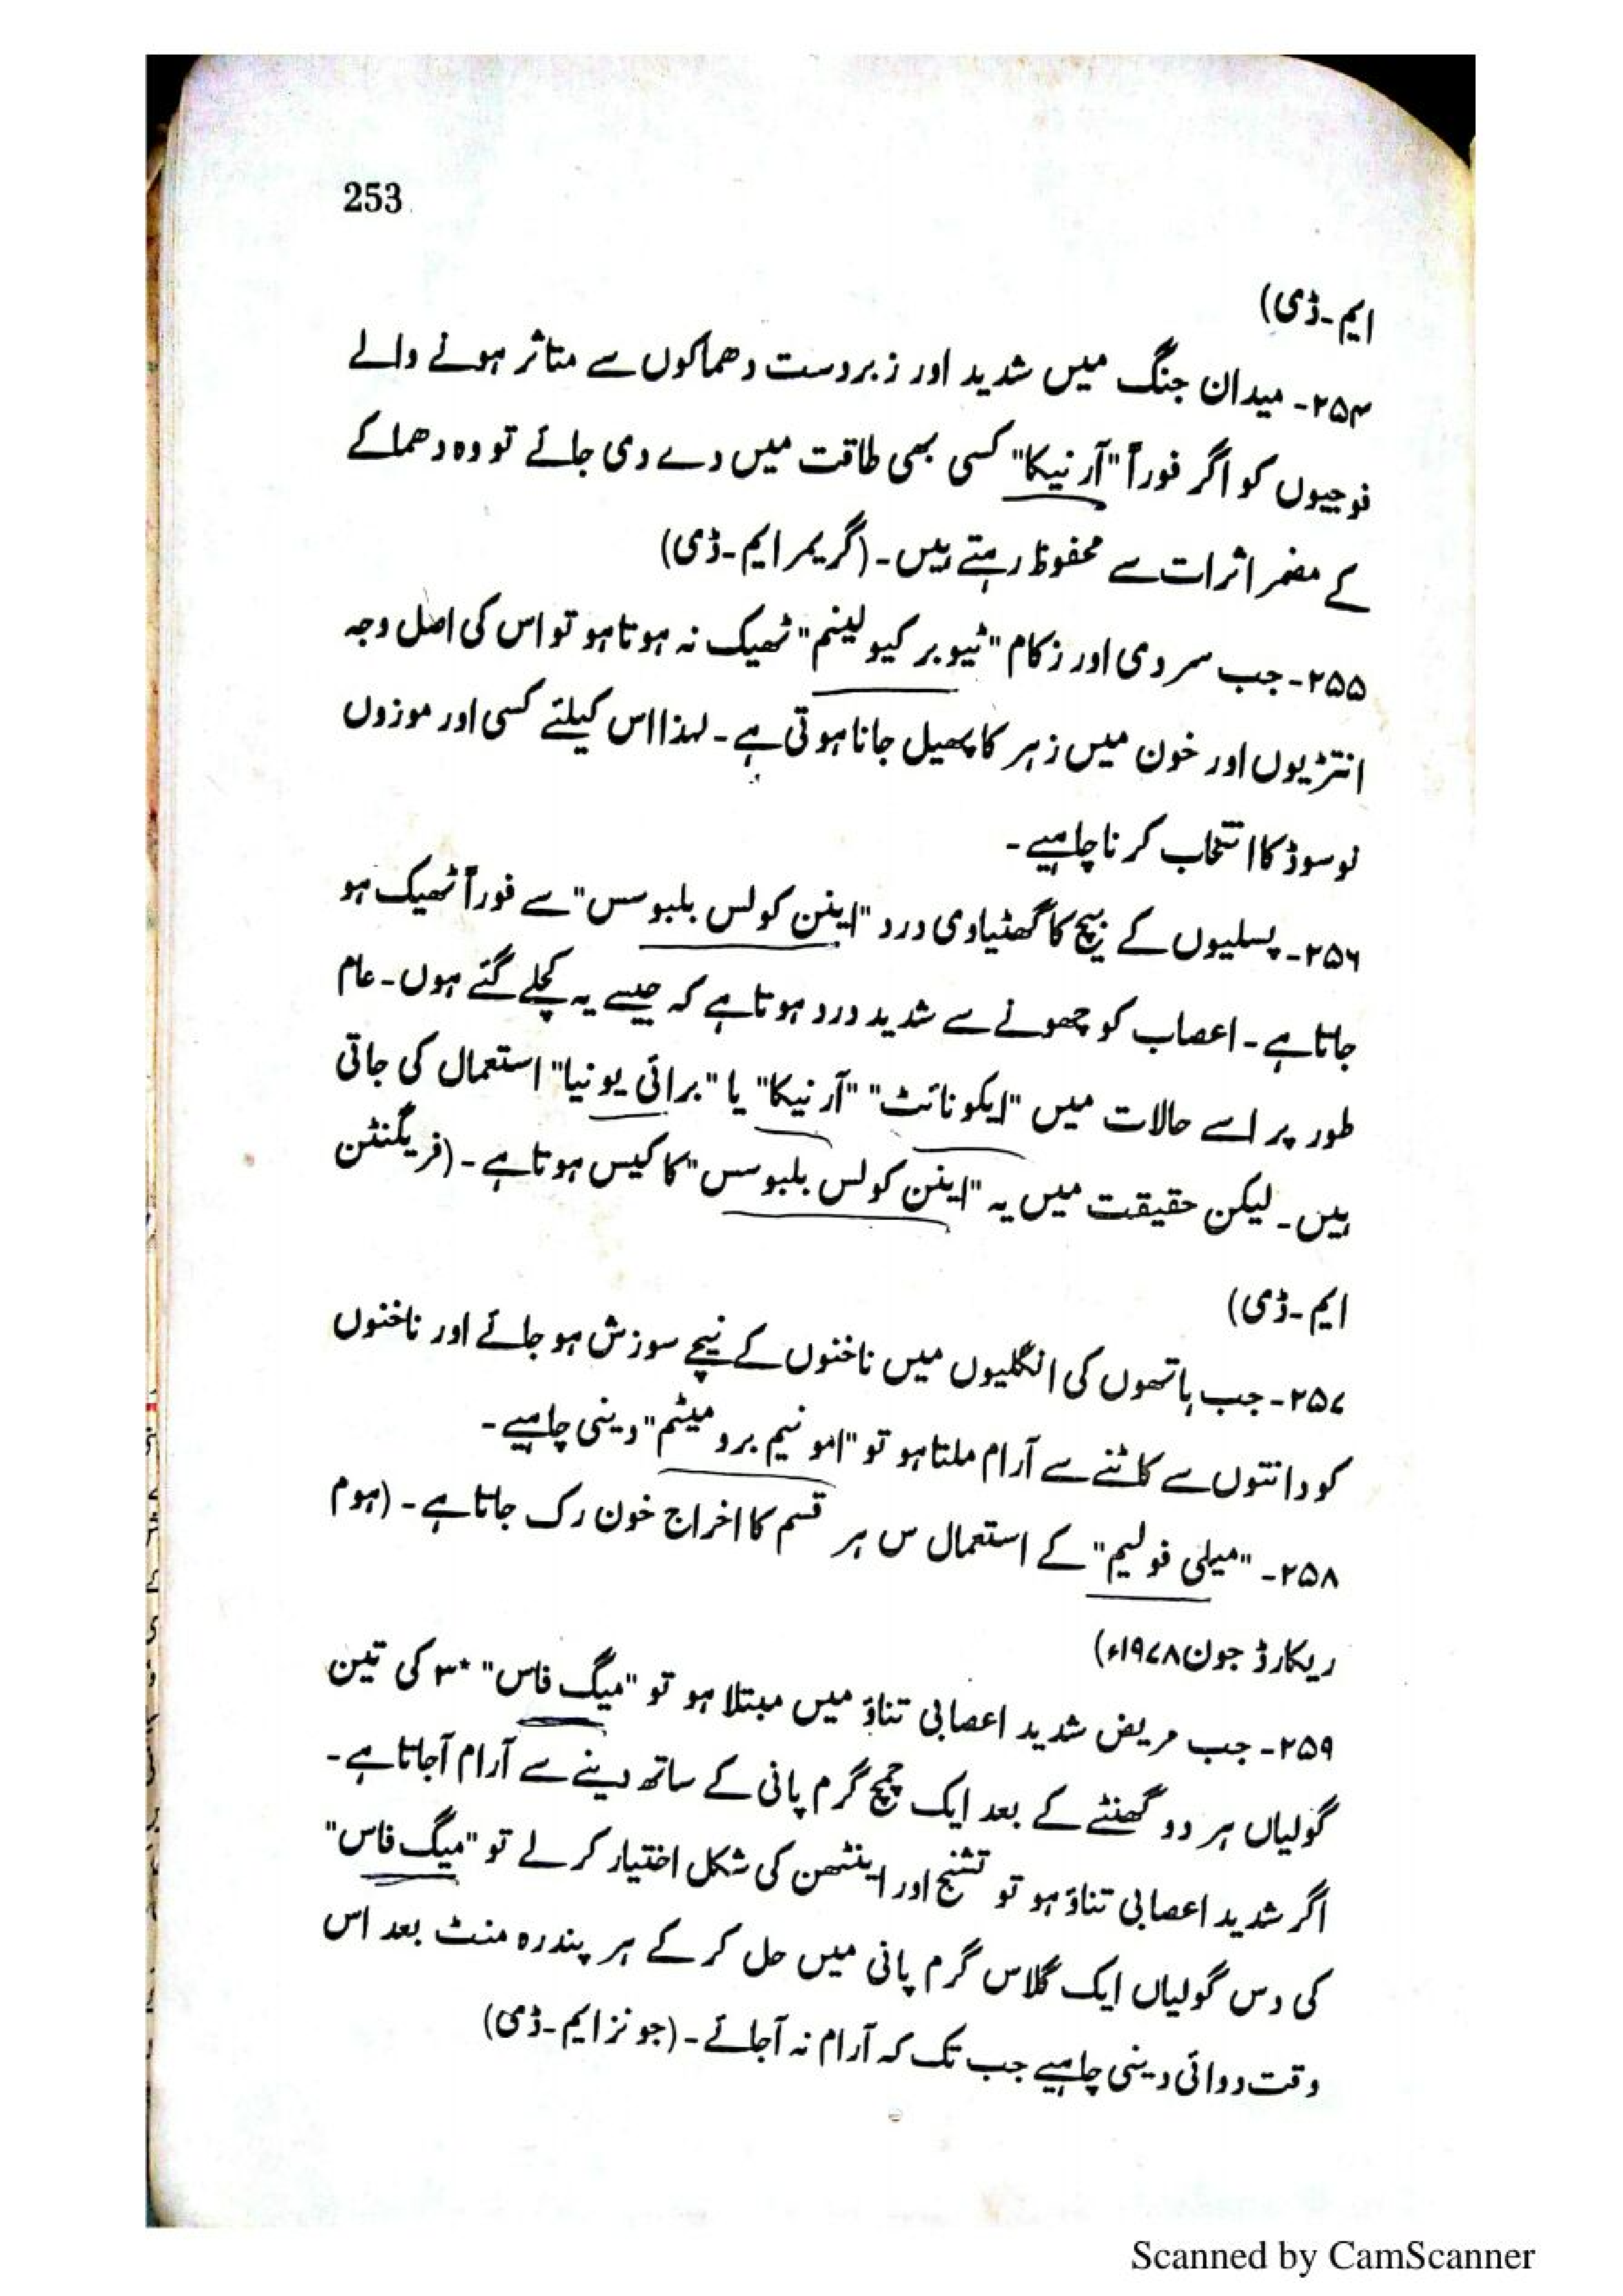 253
ایم۔ڈی)
۲۵۴۔ میدان جنگ میں شدید اور زبردست دھماکوں سے متاثر ہونے والے
فوجیوں کو اگر فوراً "آرنیکا" کسی بھی طاقت میں دے دی جائے تو وہ دھماکے
کے مضمر اثرات سے محفوظ رہتے ہیں۔ (گریمر ایم۔ڈی)
۲۵۵۔ جب سردی اور زکام "ٹیوبر کیولینم" ٹھیک نہ ہوتا ہو تو اس کی اصل وجہ
انتڑیوں اور خون میں زہر کا پھیل جانا ہوتی ہے۔ لہذا اس کیلئے کسی اور موزوں
نوسوڈ کا انتخاب کرنا چاہیے۔
۲۵۶۔ پسلیوں کے بیچ کا گھٹیاوی درد "اینن کولس بلبوسس" سے فوراً ٹھیک ہو
جاتا ہے۔ اعصاب کو چھونے سے شدید درد ہوتا ہے کہ جیسے یہ کچلے گئے ہوں۔ عام
طور پر اسے حالات میں "ایکونائٹ" "آرنیکا" یا "برائی یونیا" استعمال کی جاتی
ہیں۔ لیکن حقیقت میں یہ "اینن کولس بلبوسس" کا کیس ہوتا ہے۔ (فریگنٹن
ایم۔ڈی)
۲۵۷۔ جب ہاتھوں کی انگلیوں میں ناخنوں کے نیچے سوزش ہو جائے اور ناخنوں
کو دانتوں سے کاٹنے سے آرام ملتا ہو تو "امونیم برومیٹم" دینی چاہیے۔
۲۵۸۔ "میلی فولیم" کے استعمال س ہر قسم کا اخراج خون رک جاتا ہے۔ (ہوم
ریکارڈ جون ۱۹۷۸ء)
۲۵۹۔ جب مریض شدید اعصابی تناؤ میں مبتلا ہو تو "میگ فاس" ۳* کی تین
گولیاں ہر دو گھنٹے کے بعد ایک چمچ گرم پانی کے ساتھ دینے سے آرام آجاتا ہے۔
اگر شدید اعصابی تناؤ ہو تو تشنج اور اینٹھن کی شکل اختیار کر لے تو "میگ فاس"
کی دس گولیاں ایک گلاس گرم پانی میں حل کر کے ہر پندرہ منٹ بعد اس
وقت دوائی دینی چاہیے جب تک کہ آرام نہ آجائے۔ (جونز ایم۔ڈی)
Scanned by CamScanner